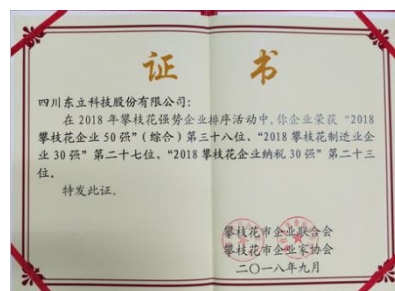 证 书
四川东立科技股份有限公司:
在 2018 年攀枝花强势企业排序活动中,你企业荣获“2018
攀枝花企业 50 强”(综合)第三十八位、“2018 攀枝花制造业企
业 30 强”第二十七位、“2018 攀枝花企业纳税 30 强”第二十三
位。
特发此证。
攀枝花市企业联合会
攀枝花市企业家协会
二〇一八年九月